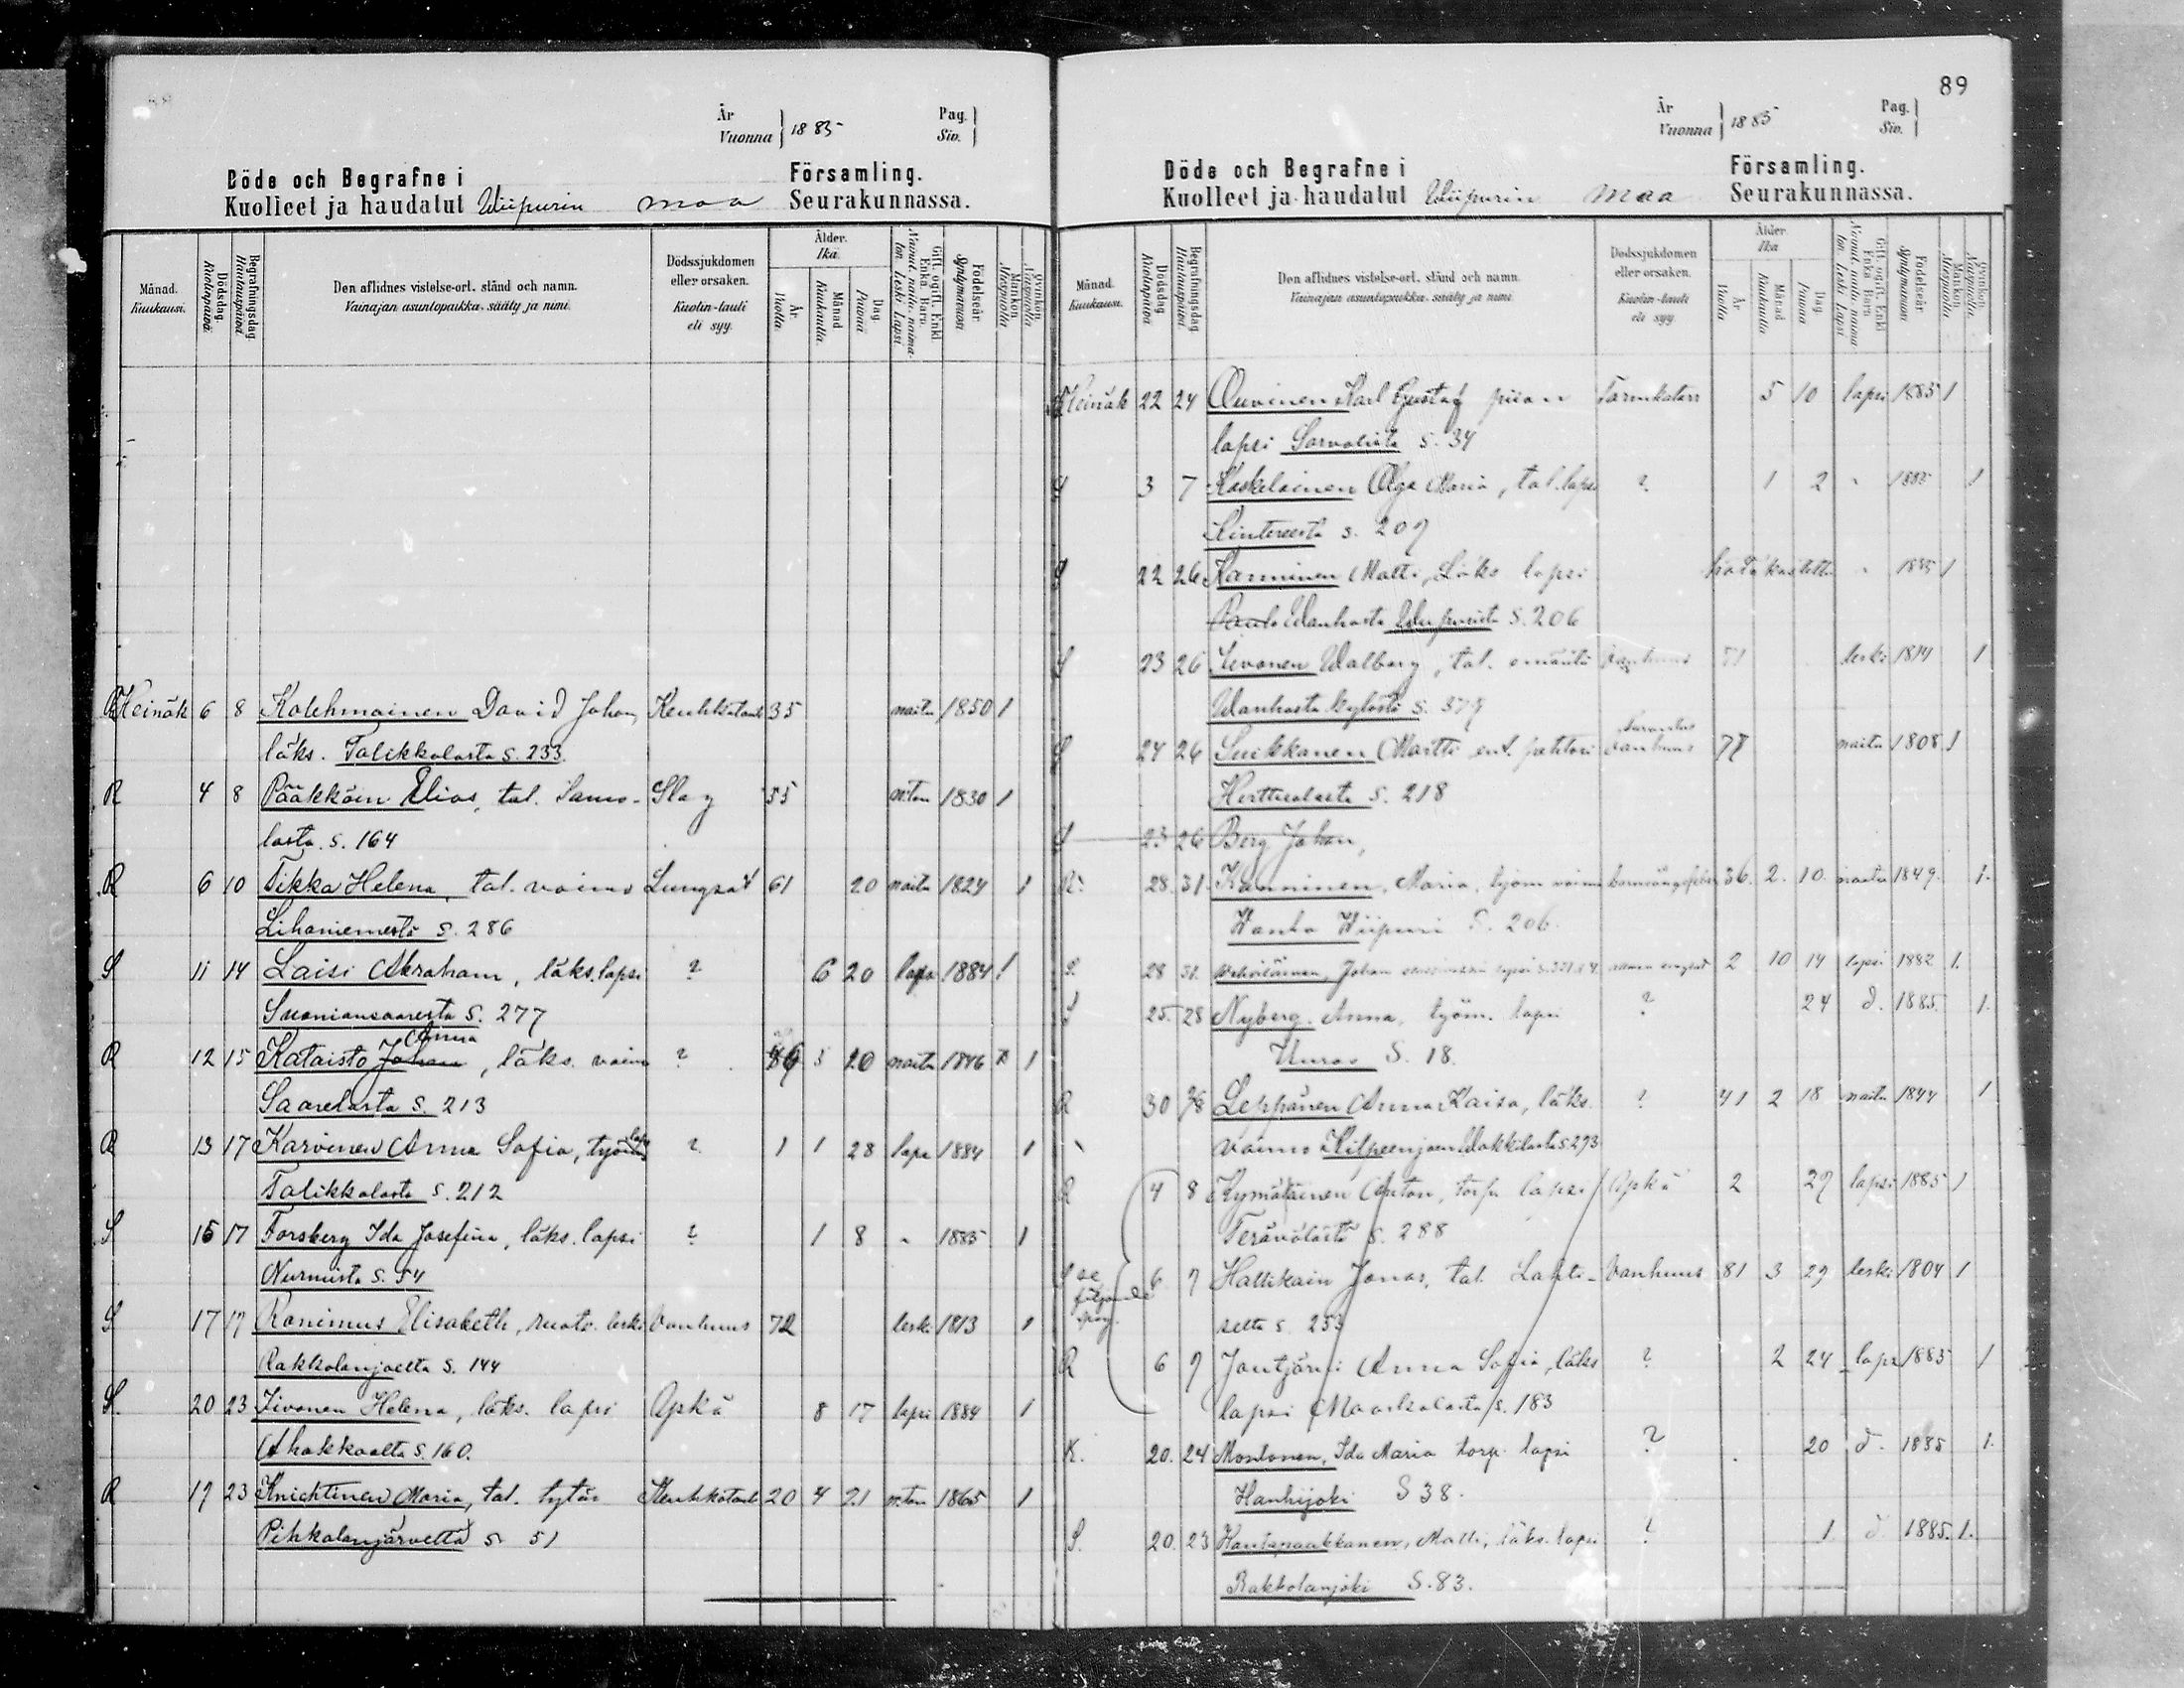 År
Vuonna } 1885
Pag.
Siv.
Döde och Begrafne i Församling.
Kuolleet ja haudatut Wiipurin maa Seurakunnassa.
Månad. Kuukausi.
Dödsdag. Kuolinpäivä.
Begrafningsdag. Hautauspäivä.
Den aflidnes vistelse-ort, stånd och namn.
Vainajan asuntopaikka, sääty ja nimi.
Dödssjukdomen eller orsaken.
Kuolin-tauti eli syy.
Ålder. Ikä.
År. Vuotta.
Månad. Kuukautta.
Dag. Päivää.
Gift, ogift, Enkl. Enka, Barn.
Födelseår. Syntymävuosi.
Mankön. Miespuolia.
Qvinkön.
R Heinäk 6 8 Kolehmainen David Johan, Keuhkotauti 35 naitu 1850 1
läks. Talikkalasta s. 233.
R 4 8 Pääkköin Elias, tal. Samo- Slag 55 n:ton 1830 1
lasta. s. 164
R 6 10 Tikka Helena, tal. vaimo Lungsot 61 20 naitu 1824 1
Lihaniemestä s. 286
S 11 14 Laisi Abraham, läks. lapsi ? 6 20 lapsi 1884 1
Suoniansaaresta s. 277
Anna
R 12 15 Kataisto Johan, läks. vaimo ? 3 20 naitu 1846 1
Saarelasta s. 213
R 13 17 Karvinen Anna Sofia, työm lapsi ? 1 1 28 lapsi 1884 1
Talikkalasta s. 212
S 15 17 Forsberg Ida Josefina, läks. lapsi ? 1 8 " 1885 1
Nurmista s. 54
S 17 19 Ranimus Elisabeth, ruotv. leski Vanhuus 72 leski 1813 1
Rakkolanjoelta s. 144
S. 20 23 Iivonen Helena, läks. lapsi Apkä 8 17 lapsi 1884 1
Ahokkaalta s. 160.
R 19 23 Knichtinen Maria, tal. tytär Keuhkotauti 20 4 21 n:ton 1865 1
Pihkalanjärveltä s. 51
89
År
Vuonna } 1885
Pag.
Siv.
Döde och Begrafne i Församling.
Kuolleet ja haudatut Wiipurin maa Seurakunnassa.
Månad. Kuukausi.
Dödsdag. Kuolinpäivä.
Begrafningsdag. Hautauspäivä.
Den aflidnes vistelse-ort, stånd och namn.
Vainajan asuntopaikka, sääty ja nimi.
Dödssjukdomen eller orsaken.
Kuolin-tauti eli syy.
Ålder. Ikä
År. Vuotta
Månad. Kuukautta
Dag. Päivää
Gift, ogift, Enkl. Enka, Barn.
Födelseår. Syntymävuosi.
Mankön. Miespuolia.
Qvinkön.
Heinäk 22 24 Ouvinen Karl Gustaf piian Tarmkatarr 5 10 lapsi 1885 1
lapsi Sorvalista s. 34
S 3 7 Koskelainen Olga Maria, tal. lapsi ? 1 2 " 1885 1
Kintereestä s. 209
S 22 26 Karminen Matti, Läks lapsi hätäkastettu " 1885 1
Wanhasta Wiipurista s. 206
S 23 26 Sevonen Walborg, tal. emäntä Vanhuus 71 leski 1814 1
Wanhasta kylästä s. 379
S 24 26 Suikkanen Martti ent. Vanhuus 77 naitu 1808 1
Herttualasta s. 218
S 23 26 Berg Johan,
R. 28. 31. Kanninen, Maria, työm vaimo barnsängsfeber 36. 2. 10. naitu 1849. 1.
Wanha Wiipuri S. 206.
S. 28 31. Johan lapsi 2 10 14 lapsi 1882 1.
S 25. 28 Nyberg. Anna, työm. lapsi ? 24 d. 1885. 1.
Uuras S. 18.
R 30 Leppänen Anna Kaisa, läks. ? 41 2 18 naitu 1844 1
vaimo Kilpeenjoen Wakkilasta s. 293
R 4 8 Kymäläinen Anton, torp. lapsi Apkä 2 29 lapsi 1885 1
Terävälästä s. 288
S 6 9 Hallikain Jonas, tal. Lahti- Vanhuus 81 3 29 leski 1804 1
selta s. 253
se följande pag.
R 6 9 Joutjärvi Anna Sofia, läks ? 2 24 lapsi 1885 1
lapsi Maaskolasta s. 183
K. 20. 24 Montonen, Ida Maria torp. lapsi ? 20 d. 1885 1.
Hanhijoki S 38.
S. 20. 23 Hantapaakkanen, Matti, läks. lapsi ? 1 d 1885. 1.
Rakkolanjoki S. 83.